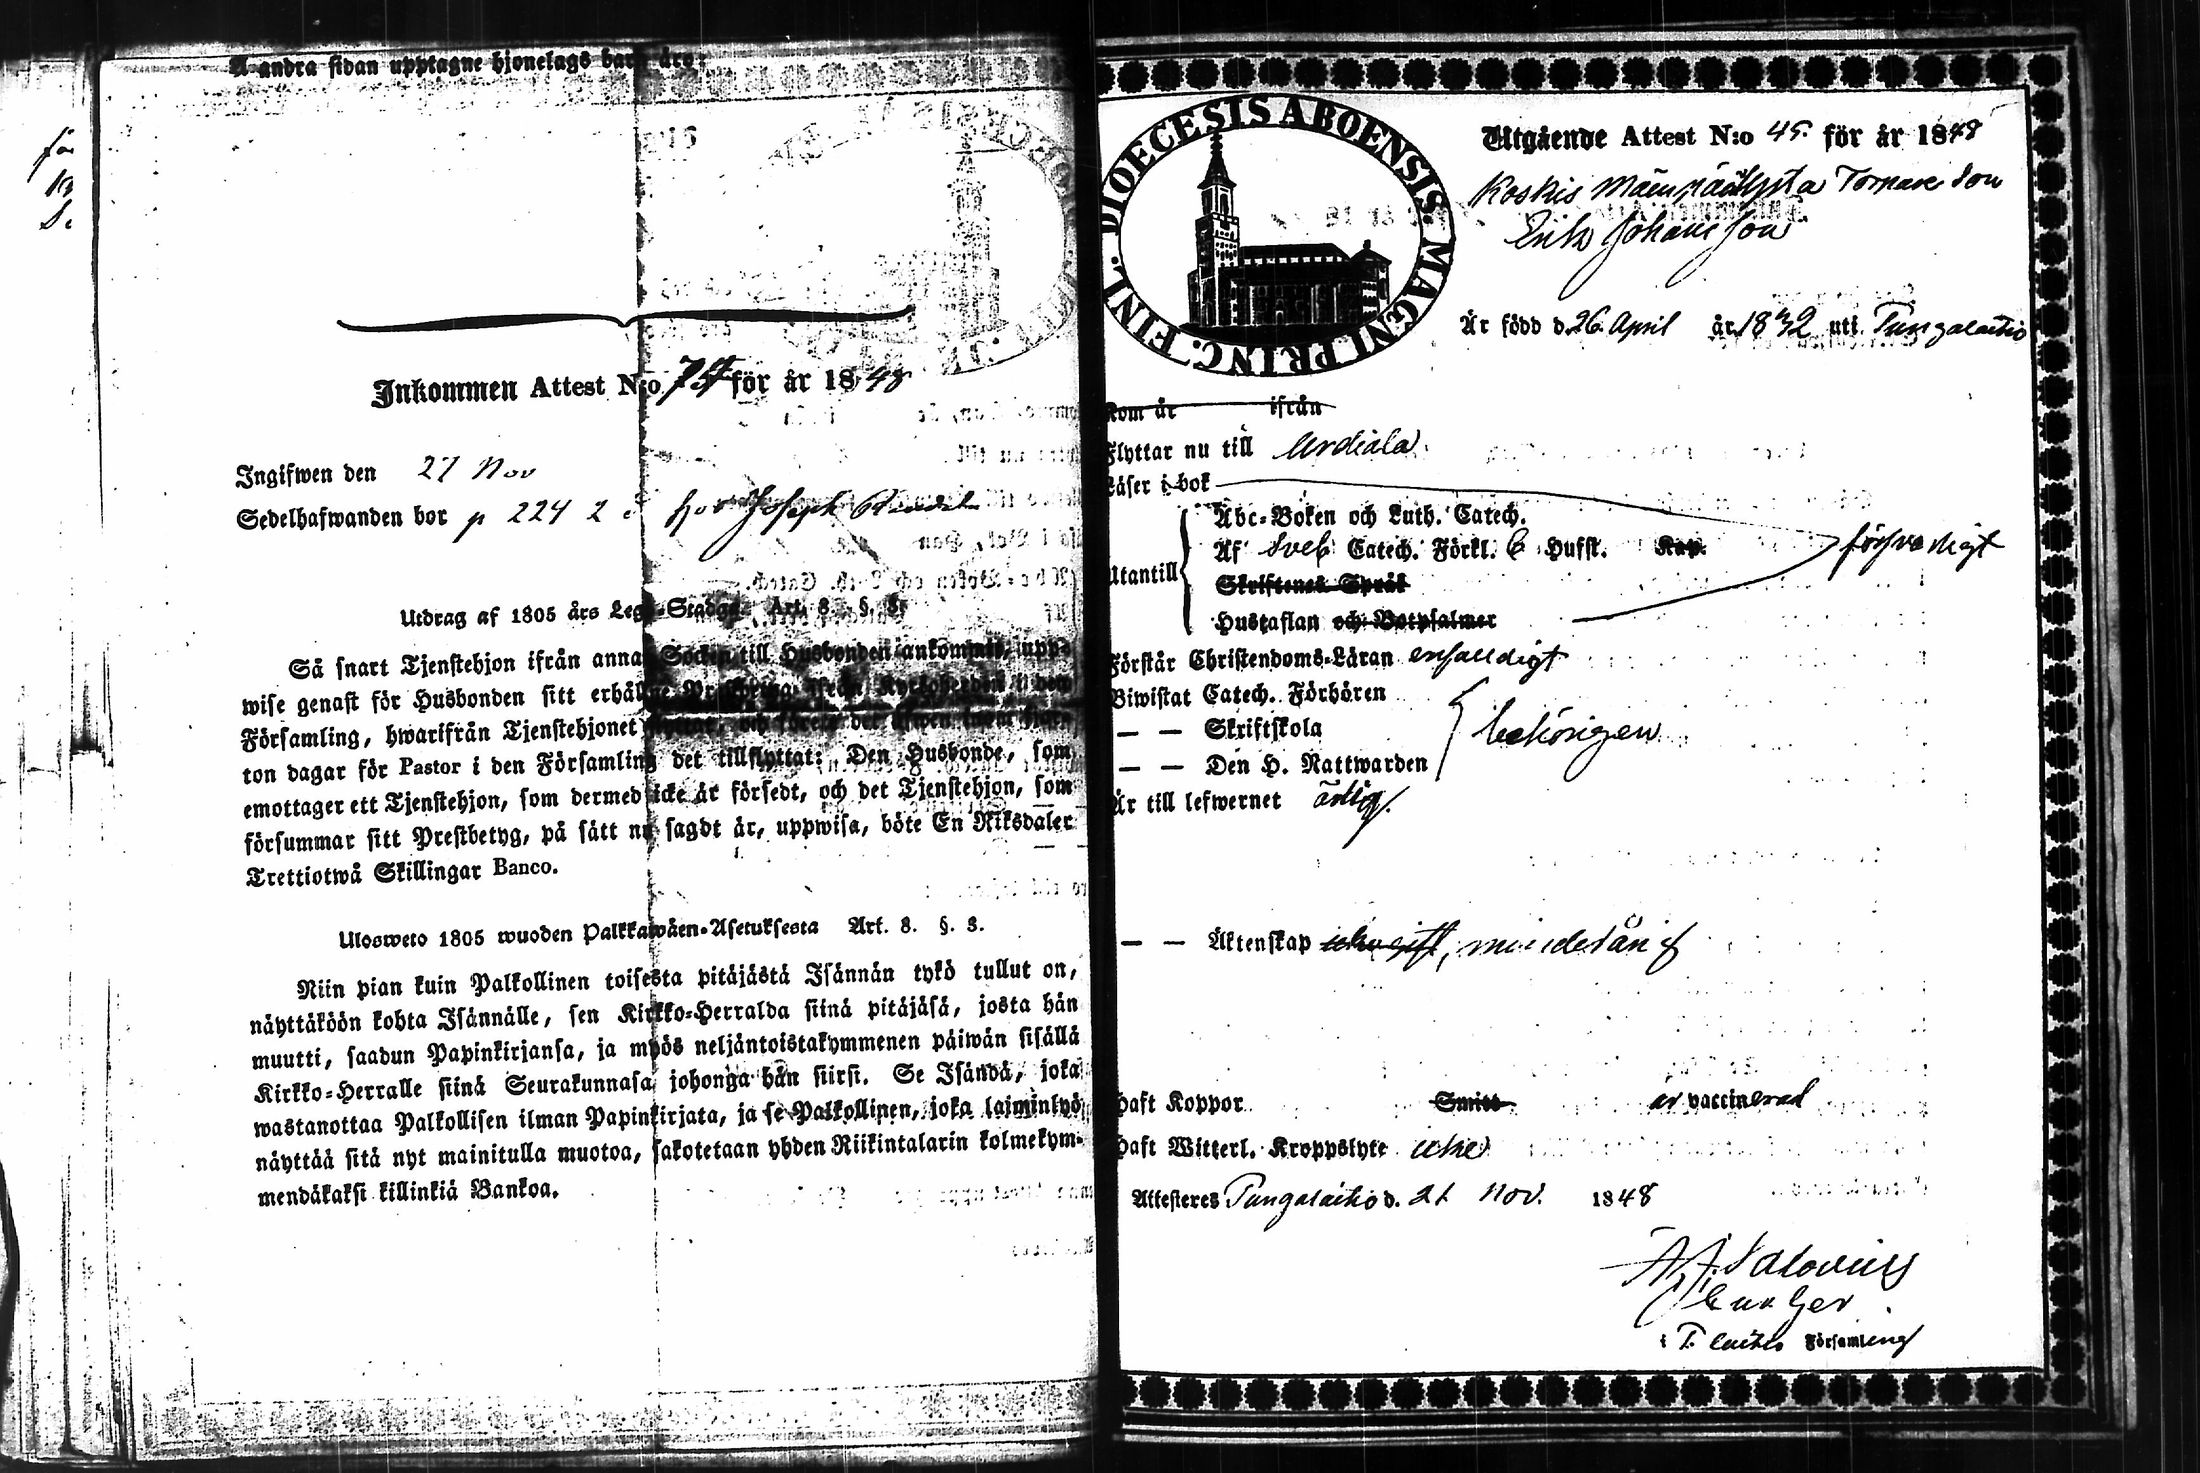 Å andra sidan upptagne hjonelags barn äro:
Inkommen Attest N:o för år 1848
Ingifwen den 27 Nov
Sedelhafwanden bor p 224 2 hos Joseph
Utdrag af 1805 års Lego-Stadga. Art. 8. §. 3.
Så snart Tjenstehjon ifrån annan Socken till Husbonden ankommit, upp-
wise genast för Husbonden sitt erhållne Prestbetyg ifrån Kyrkoherden i den
Församling, hwarifrån Tjenstehjonet flyttat, och förete det äfwen inom fjor-
ton dagar för Pastor i den Församling det tillflyttat: Den Husbonde, som
emottager ett Tjenstehjon, som dermed icke är försedt, och det Tjenstehjon, som
försummar sitt Prestbetyg, på sätt nu sagdt är, uppwisa, böte En Riksdaler
Trettiotwå Skillingar Banco.
Ulosweto 1805 wuoden Palkkawäen-Asetuksesta Art. 8. §. 3.
Niin pian kuin Palkollinen toisesta pitäjästä Isännän tykö tullut on,
näyttäköön kohta Isännälle, sen Kirkko-Herralda siinä pitäjäsä, josta hän
muutti, saadun Papinkirjansa, ja myös neljäntoistakymmenen päiwän sisällä
Kirkko-Herralle siinä Seurakunnasa, johonga hän siirsi. Se Isändä, joka
wastanottaa Palkollisen ilman Papinkirjata, ja se Palkollinen, joka laiminlyö
näyttää sitä nyt mainitulla muotoa, sakotetaan yhden Riikintalarin kolmekym-
mendäkaksi killinkiä Bankoa.
DIOECESIS ABOENSIS. MAGNI PRINC. FINL.
Utgående Attest N:o 45. för år 1848
Koskis Torpare Son
Erik Johansson
Är född d. 26 April år 1832 uti Pungalaitio
Kom år ifrån
Flyttar nu till Urdiala
Läser i bok
Abc-Boken och Luth. Catech.
Af Sveb Catech. Förkl. 6 Hufst. Kap.
försvarligt
Utantill
Skriftenes Språk
Hustaflan och Botpsalmer
Förstår Christendoms-Läran enfaldigt
Biwistat Catech. Förhören
— — Skriftskola
behörigen
— — Den H. Nattwarden
Är till lefwernet ärlig.
— — Äktenskap minderårig
Haft Koppor Smitt är vaccinerad
Haft Witterl. Kroppslyte icke
Attesteres Pungalaitio d. 21 Nov. 1848
i P. laitio Församling